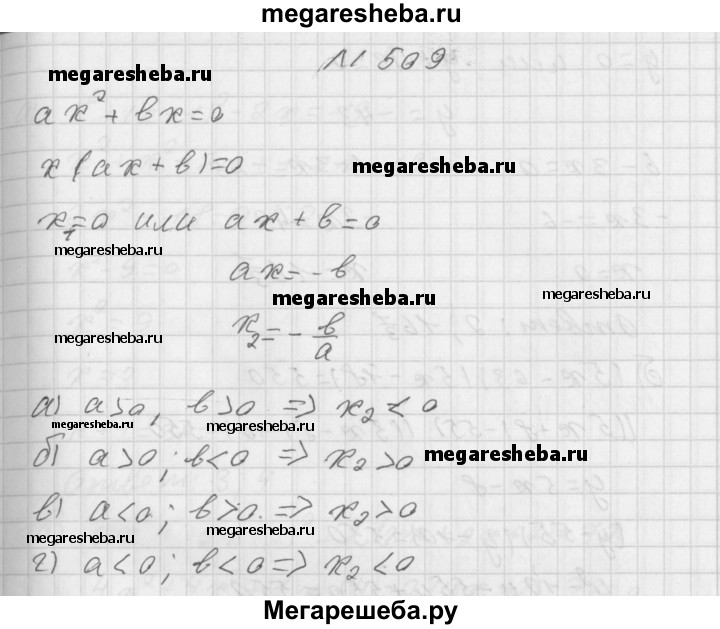 megaresheba.ru
№ 509
megaresheba.ru
ax² + bx = 0
x(ax + b) = 0
megaresheba.ru
x₁ = 0 или ax + b = 0
megaresheba.ru
ax = -b
megaresheba.ru
megaresheba.ru
x₂ = - b/a
megaresheba.ru
а) a > 0, b > 0 => x₂ < 0
megaresheba.ru
megaresheba.ru
б) a > 0; b < 0 => x₂ > 0
megaresheba.ru
в) a < 0; b > 0 => x₂ > 0
megaresheba.ru
megaresheba.ru
г) a < 0; b < 0 => x₂ < 0
Мегарешеба.ру